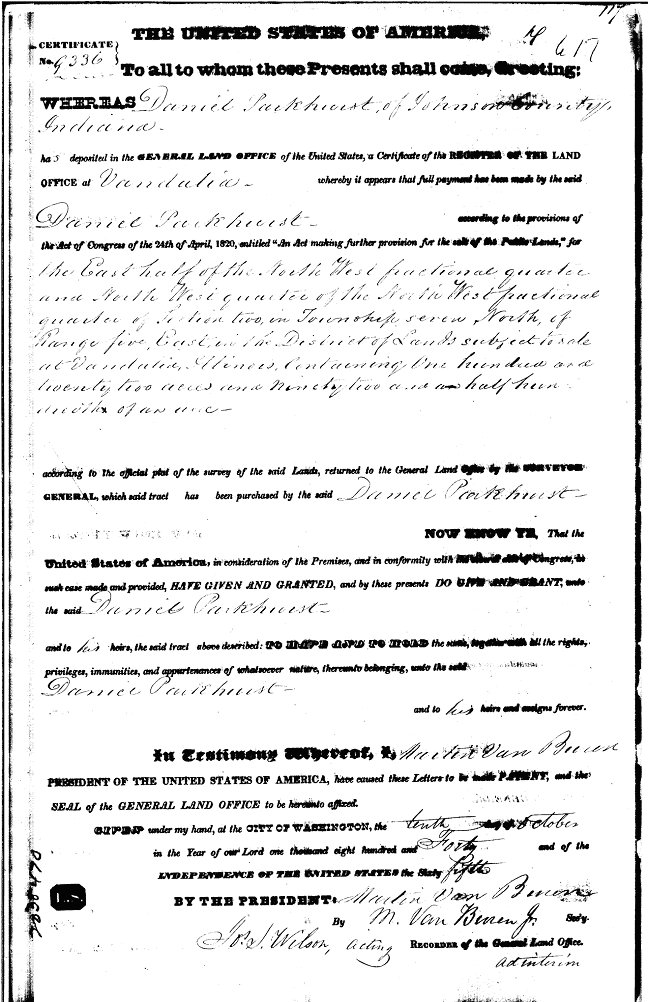 THE UNITED STATES OF AMERICA,
617
CERTIFICATE
No. 9336
To all to whom these Presents shall come, Greeting:
WHEREAS Daniel Parkhurst, of Johnson County,
Indiana
has deposited in the GENERAL LAND OFFICE of the United States, a Certificate of the REGISTER OF THE LAND
OFFICE at Vandalia whereby it appears that full payment has been made by the said
Daniel Parkhurst according to the provisions of
the Act of Congress of the 24th of April, 1820, entitled "An Act making further provision for the sale of the Public Lands," for
the East half of the North West fractional quarter
and North West quarter of the North West fractional
quarter of Section two, in Township seven North, of
Range five, East, in the District of Lands subject to sale
at Vandalia, Illinois, Containing One hundred and
twenty two acres and ninety two and a half hun
dredths of an acre
according to the official plat of the survey of the said Lands, returned to the General Land Office by the SURVEYOR
GENERAL, which said tract has been purchased by the said Daniel Parkhurst
NOW KNOW YE, That the
United States of America, in consideration of the Premises, and in conformity with Congress, in
such case made and provided, HAVE GIVEN AND GRANTED, and by these presents DO GIVE AND GRANT, unto
the said Daniel Parkhurst
and to his heirs, the said tract above described: TO HAVE AND TO HOLD the same, together with all the rights,
privileges, immunities, and appurtenances of whatsoever nature, thereunto belonging, unto the said
Daniel Parkhurst
and to his heirs and assigns forever.
In Testimony Whereof, I, Martin Van Buren
PRESIDENT OF THE UNITED STATES OF AMERICA, have caused these Letters to be made PATENT, and the
SEAL of the GENERAL LAND OFFICE to be hereunto affixed.
GIVEN under my hand, at the CITY OF WASHINGTON, the tenth day of October
in the Year of our Lord one thousand eight hundred and Forty and of the
INDEPENDENCE OF THE UNITED STATES the Sixty fifth
BY THE PRESIDENT: Martin Van Buren
By M. Van Buren Jr. Sec'y.
Jos. S. Wilson, acting RECORDER of the General Land Office.
ad interim